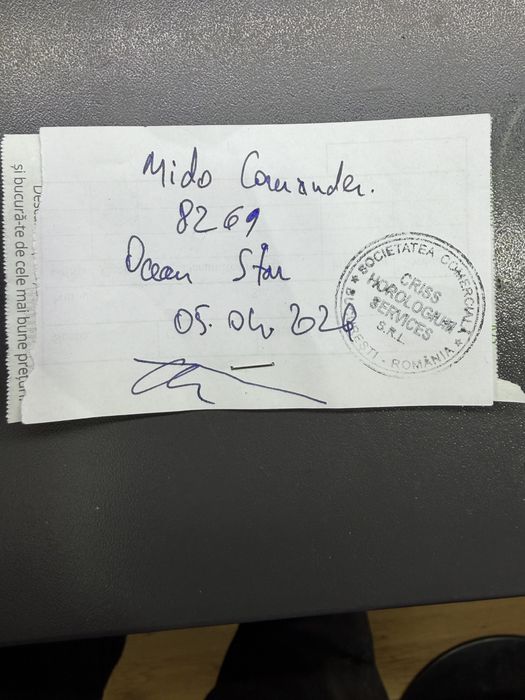 Mido Comander.
8269
Ocean Star
05.04.2020
SOCIETATEA COMERCIALĂ
CRISS
HOROLOGIUM
SERVICES
S.R.L.
BUCUREȘTI - ROMÂNIA
și bucură-te de cele mai bune prețuri